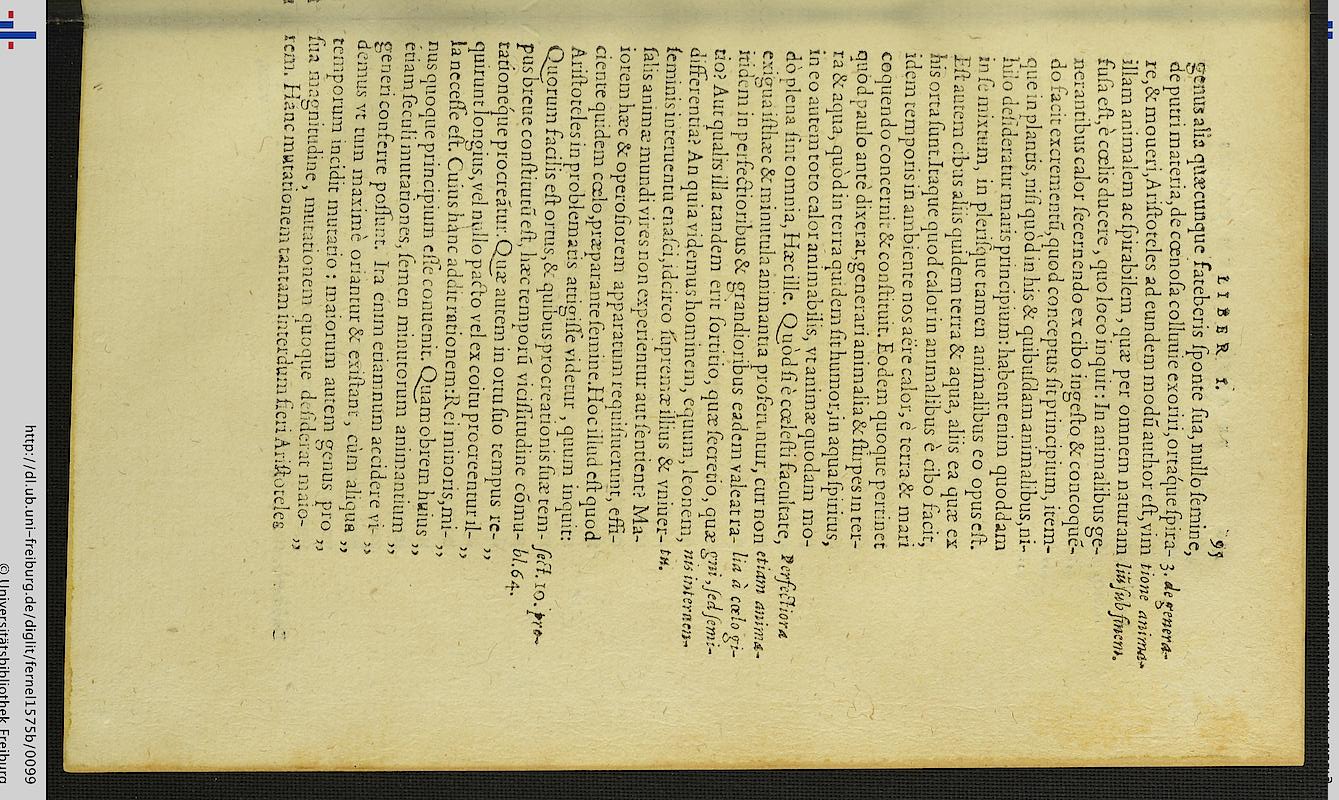 LIBER I. 95
genus alia quæcunque fateberis sponte sua, nullo semine,
de putri materia, de cœnosa colluuie exoriri, ortáque spira-
re, & moueri, Aristoteles ad eundem modū author est, vim
illam animalem ac spirabilem, quæ per omnem naturam
fusa est, è cœlis ducere, quo loco inquit: In animalibus ge-
nerantibus calor secernendo ex cibo ingesto & concoquē-
do facit excrementū, quod conceptus sit principium, item-
que in plantis, nisi quod in his & quibusdam animalibus, ni-
hilo desideratur maris principium: habent enim quoddam
in se mixtum, in plerisque tamen animalibus eo opus est.
Est autem cibus aliis quidem terra & aqua, aliis ea quæ ex
his orta sunt. Itaque quod calor in animalibus è cibo facit,
idem temporis in ambiente nos aëre calor, è terra & mari
coquendo concernit & constituit. Eodem quoque pertinet
quòd paulo antè dixerat, generari animalia & stirpes in ter-
ra & aqua, quòd in terra quidem sit humor, in aqua spiritus,
in eo autem toto calor animabilis, vt animæ quodam mo-
dò plena sint omnia, Hæc ille. Quòd si è cœlesti facultate,
exigua isthæc & minutula animantia proferuntur, cur non
itidem in perfectioribus & grandioribus eadem valeat ra-
tio? Aut qualis illa tandem erit sortitio, quæ secretio, quæ
differentia? An quia videmus hominem, equum, leonem,
seminis interuentu enasci, idcirco supremæ illius & vniuer-
salis animæ mundi vires non experientur aut sentient? Ma-
iorem hæc & operosiorem apparatum requisiuerunt, effi-
ciente quidem cœlo, præparante semine. Hoc illud est quod
Aristoteles in problematis attigisse videtur, quum inquit:
Quorum facilis est ortus, & quibus procreationis suæ tem-
pus breue constitutū est, hæc temporū vicissitudine cōmu-
tationéque procreātur. Quæ autem in ortu suo tempus re- ,,
quirunt longius, vel nullo pacto vel ex coitu procreentur il- ,,
la necesse est. Cuius hanc addit rationem: Rei minoris, mi- ,,
nus quoque principium esse conuenit. Quamobrem huius ,,
etiam seculi mutationes, semen minutorum animantium ,,
generi conferre possunt. Ita enim etiamnum accidere vi- ,,
demus vt tum maximè oriantur & existant, cùm aliqua ,,
temporum incidit mutatio: maiorum autem genus pro ,,
sua magnitudine, mutationem quoque desiderat maio- ,,
rem. Hanc mutationem tantam interdum fieri Aristoteles
3. de genera-
tione anima-
liū sub finem.
Perfectiora
etiam anima-
lia à cœlo gi-
gni, sed semi-
nis interuen-
tu.
sect. 10. pro-
bl. 64.
http://dl.ub.uni-freiburg.de/diglit/fernel1575b/0099
© Universitätsbibliothek Freiburg